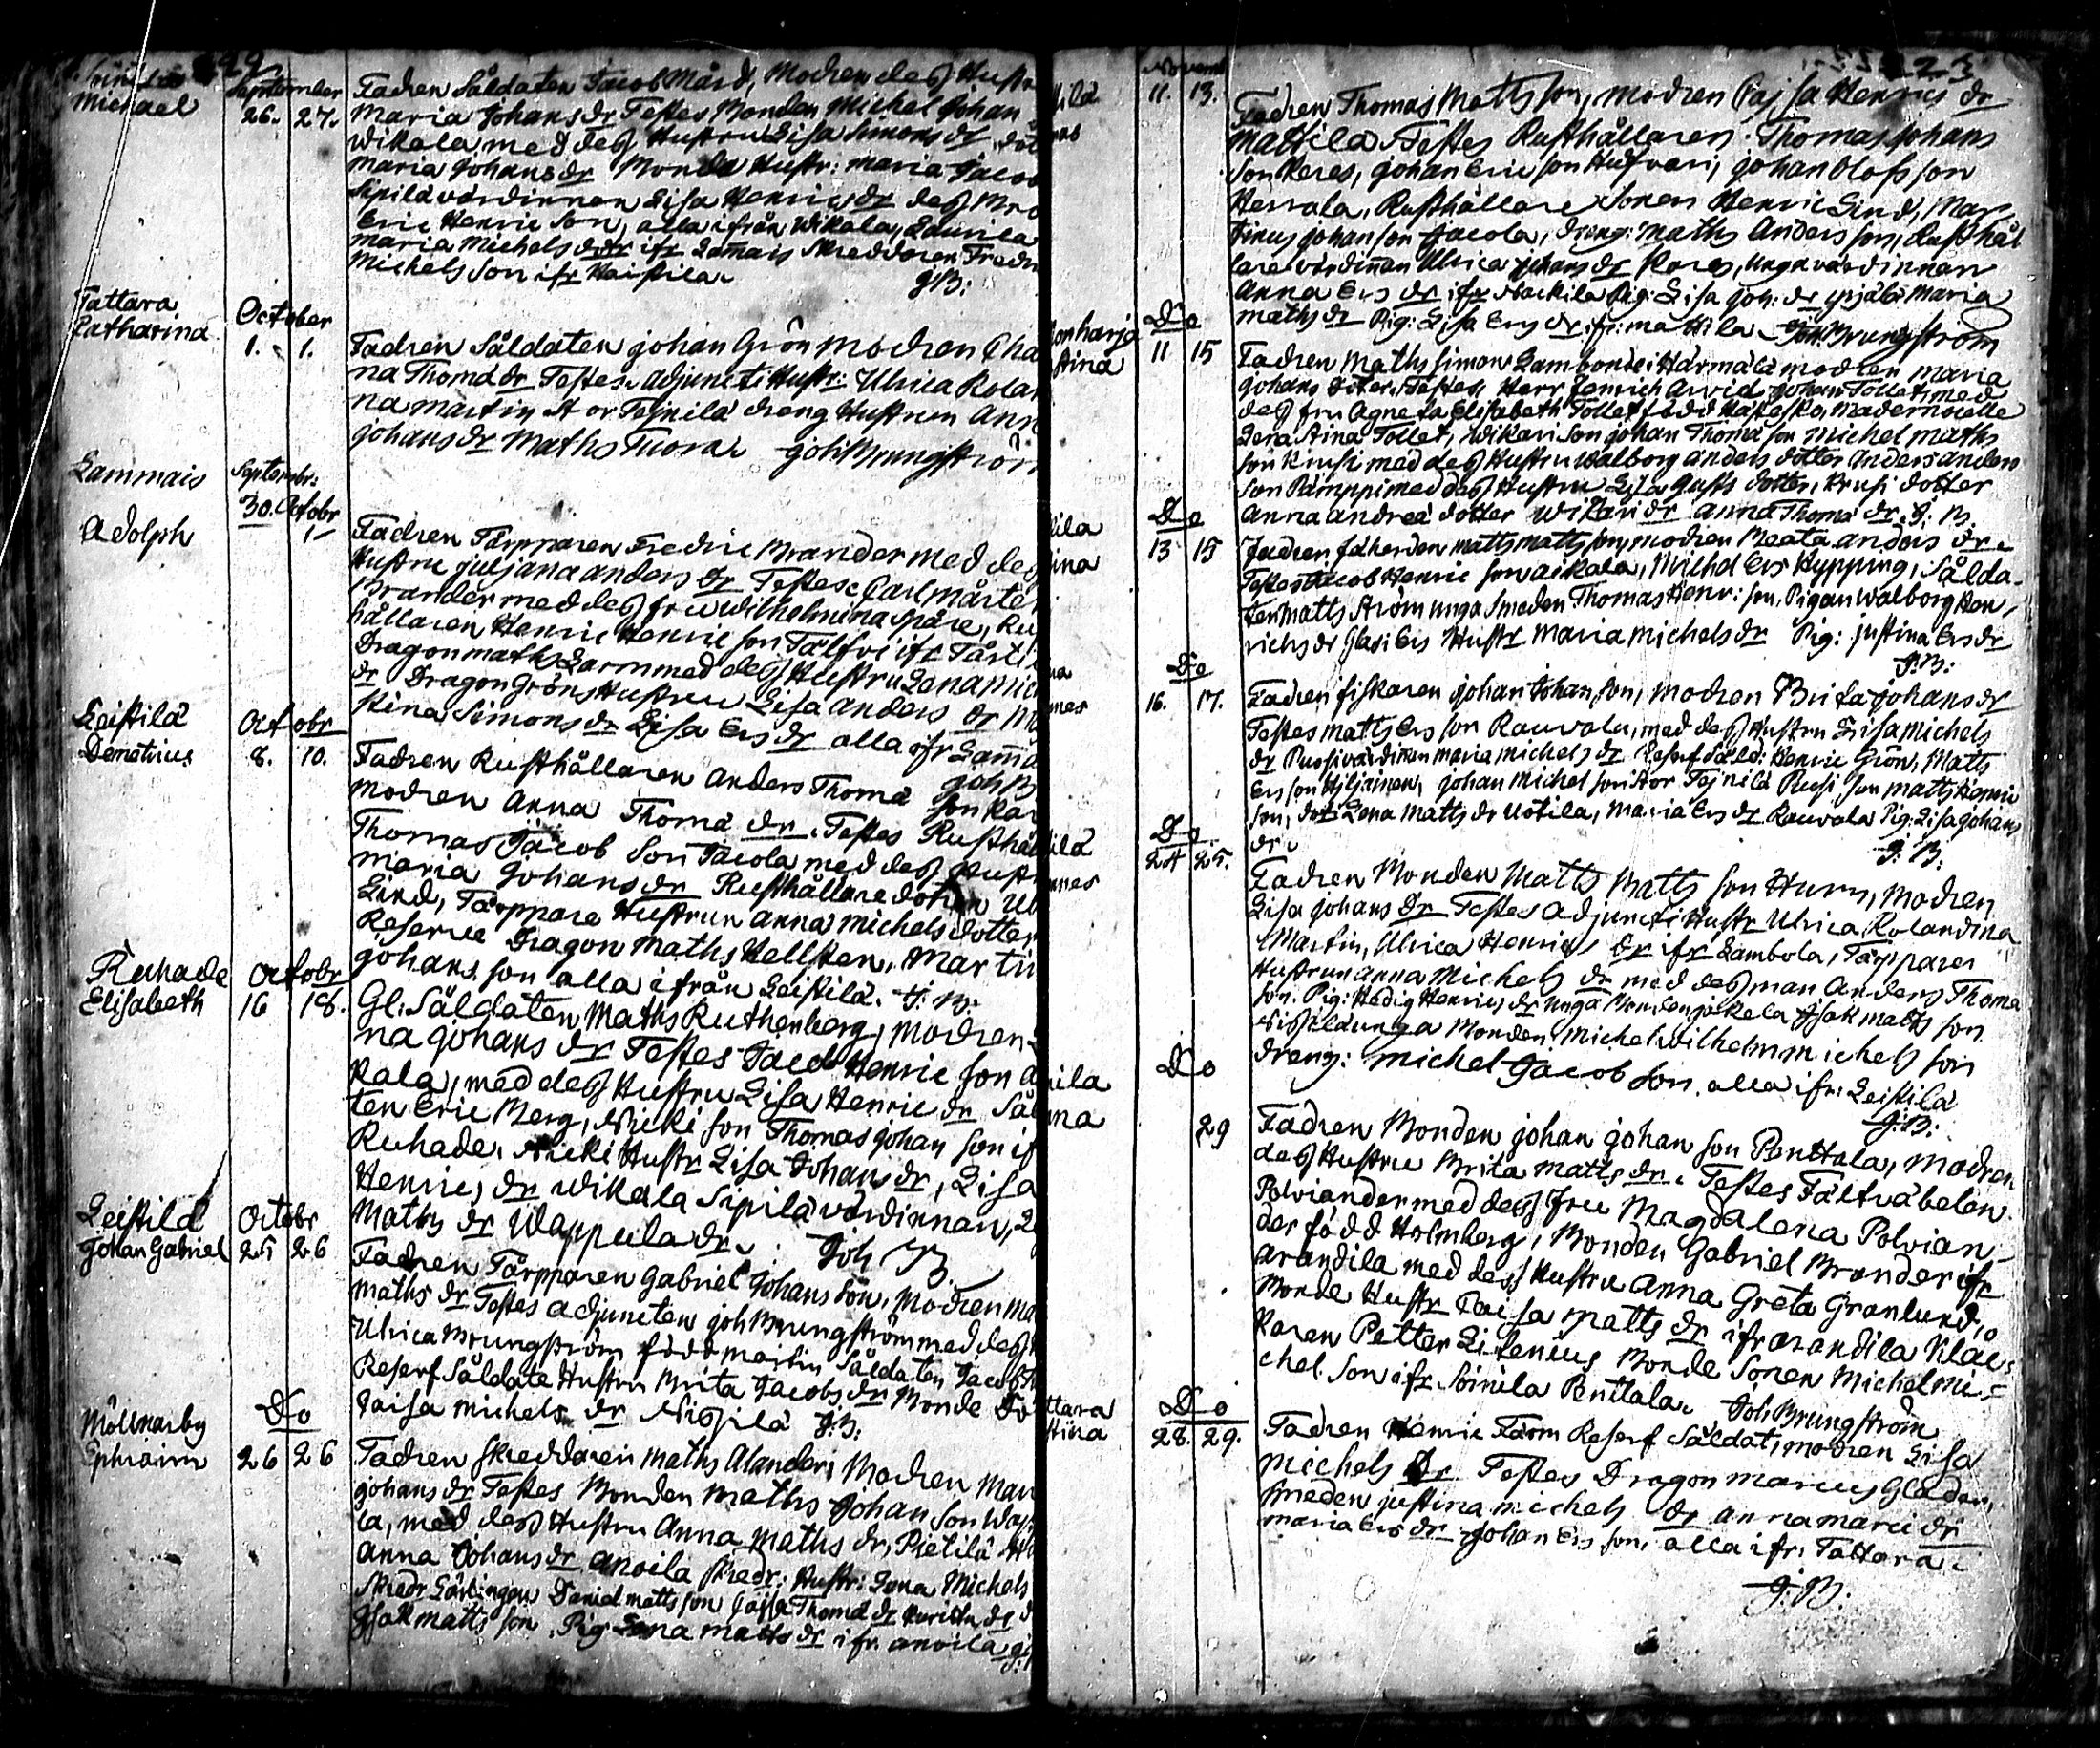 September
Michael
26. 27.
Fadren Såldaten Jacob Mård, Modren deß Hustr
Maria Johans dr Testes Bonden Michel Johan
Wikala, med deß Hustru Lisa Simons dr
Maria Johans dr Bonde Hustr: Maria Jacob
Sipilä värdinnan Lisa Henrics dr deß Bro
Eric Henric Son, alla ifrån Wikala, Laurila
Maria Michels dr ifr Lam̄ais Skreddaren Fredr
Michels Son ifr Haistila
JB:
Tattara
Catharina
October
1. 1.
Fadren Såldaten Johan Grön Modren Cha
na Thomä dr Testes Adjuncti Hustr: Ulrica Rolan
na Martin St or Tejnilä dreng Hustrun Ann
Johans dr Maths Tuora Joh Brungström
Lammais
Adolph
Septembr:
30. Octobr
1
Fadren Tårpparen Fredric Brander med deß
Hustru Juljana Anders dr Testes Carl Mårten
Brander med deß fru Wilhelmina Spåre, Ru
hållaren Henric Henric son Tälfvi ifr Tårti
Dragon Maths Larm med deß Hustru Lena Mic
dr Dragon Gröns Hustru Lisa Anders dr M
Stina Simons dr Lisa Ers dr alla ifr Lam̄a
Joh B
Leistilä
Demetrius
Octobr
8. 10.
Fadren Rusthållaren Anders Thomä Son Kar
Modren Anna Thomä dr. Testes Rusthål
Thomas Jacob Son Jacola med deß Hust
Maria Johans dr Rusthållare dotren Ul
Lind, Tårppare Hustrun Anna Michels dotter
Reserve Dragon Maths Hellsten, Martin
Johans son alla ifrån Leistilä. J: B:
Ruhade
Elisabeth
Octobr
16 18.
Gl: Såldaten Maths Ruthenberg, Modren
na Johans dr Testes Jacob Henric Son a
kala, med deß Hustru Lisa Henric dr Sål
ten Eric Berg, Nicki son Thomas Johan Son if
Ruhade, Nicki Hustr Lisa Johans dr, Lisa
Henrics dr Wikala Sipilä värdinnan, L
Maths dr Wappula dr. Joh B.
Leistilä
Johan Gabriel
Octobr
25 26
Fadren Tårpparen Gabriel Johans Sön, Modren Ma
Maths dr Testes Adjuncten Joh Brungström med deß
Ulrica Brungström född Martin Såldaten Jacob
Reserf Såldate Hustru Brita Jacobs dr Bonde Do
Caisa Michels dr Nißilä J: B:
Möllnarby
Ephraim
Do
26 26
Fadren Skreddaren Maths Alander, Modren Mar
Johans dr Testes Bonden Maths Johan Son Wap
la, med deß Hustru Anna Maths dr, Pietilä
Anna Johans dr Anoila Skredr: Hustr: Lena Michels
Skredr Lärlingen Daniel Matts son Cajsa Thomä dr
Isak Matts son, Pig: Lena Matts dr ifr Anoila J:
Novemb
ilä
11. 13.
Fadren Thomas Matts son, Modren Cajsa Henrics dr
Mattila Testes Rusthållaren Thomas Johans
Son Keres, Johan Eric son Hufvari, Johan Olofs son
Herrala, Rusthållare Sonen Henric Lind, Mar
tinus Johan son Jacola, dreng: Maths Anders son, Rusthål
lare värdinnan Ulrica Johans dr Kares, Unga värdinnan
Anna Ers dr ifr Nackila Pig: Lisa Joh: dr Maria
Maths dr Pig: Lisa Ers dr ifr: Mattila Joh: Brungström
onharja
Stina
Do
11 15
Fadren Maths Simons Lambon i Härmälä Modren Maria
Johans doter. Testes Herr Arvid Johan Tollet, med
deß fru Agneta Elisabeth Tollet född Mademoiselle
Lera Stina Tollet, Wikari Son Johan Thomä son Michel Maths
son Krusi med deß Hustru Walborg Anders dotter Anders Anders
son Pämppi med deß Hustru Lisa Gusts dotter, Krusi dotter
Anna Andreä dotter Wikari dr Anna Thomä dr. J: B.
ila
ina
Do
13 15
Fadren fäherden Matts Matts son, Modren Beata Anders dr.
Testes Jacob Henric son Aikala, Michel Ers Hypping, Sålda
ten Matts Ström unga Smeden Thomas Henr: son, Pigan Walborg Hen
richs dr Glasi Ers Hustr Maria Michels dr Pig: Justina Ers dr
J: B:
na
nes
Do
16. 17.
Fadren fiskaren Johan Johan, son, Modren Brita Johans dr
Testes Matts Ers son Rauvola, med deß Hustru Lisa Michels
dr Pussi värdinnan Maria Michels dr Reserf Såld: Henric Grön, Matts
Ers son Hiljainen, Johan Michel son Stor Tejnilä Pussi son Matts Henric
son, dotr Lena Matts dr Uotila, Maria Ers dr Rauvola Pig: Lisa Johans
dr.
J: B:
ilä
nnes
Do
24 25.
Fadren Bonden Matts Matts son Hurri, Modren
Lisa Johans dr Testes Adjuncti Hustr Ulrica Rolandina
Martin, Ulrica Henrics dr ifr Lambola, Tårppares
Hustrun Anna Michels dr med deß man Anders Thomä
son. Pig: Hedvig Henrics dr unga Bonden Jokela Isak Matts son
Nißilä unga Bonden Michel Wilhelm Michels son
dreng: Michel Jacob son, alla ifr: Leistilä
J: B:
ila
na
Do
29
Fadren Bonden Johan Johan son Penttala, Modren
deß Hustru Brita Matts dr. Testes Fältväbelen
Polviander med deß fru Magdalena Polvian
der född Holmberg, Bonden Gabriel Brander ifr
Arandila med deß Hustru Anna Greta Granlund,
Bonde Hustr Caisa Matts dr ifr Arandila Klac
karen Petter Litenius Bonde Sonen Michel Mi
chel Son ifr Soinila Penttala. Joh Brungström
ttara
Stina
Do
28. 29.
Fadren Henric Färm Reserf Såldat, Modren Lisa
Michels Dr Testes Dragon Marcus Gladen,
Smeden Justina Michels dr Anna Marci dr
Maria Ers dr Johan Ers son, alla ifr: Tattara
J: B: